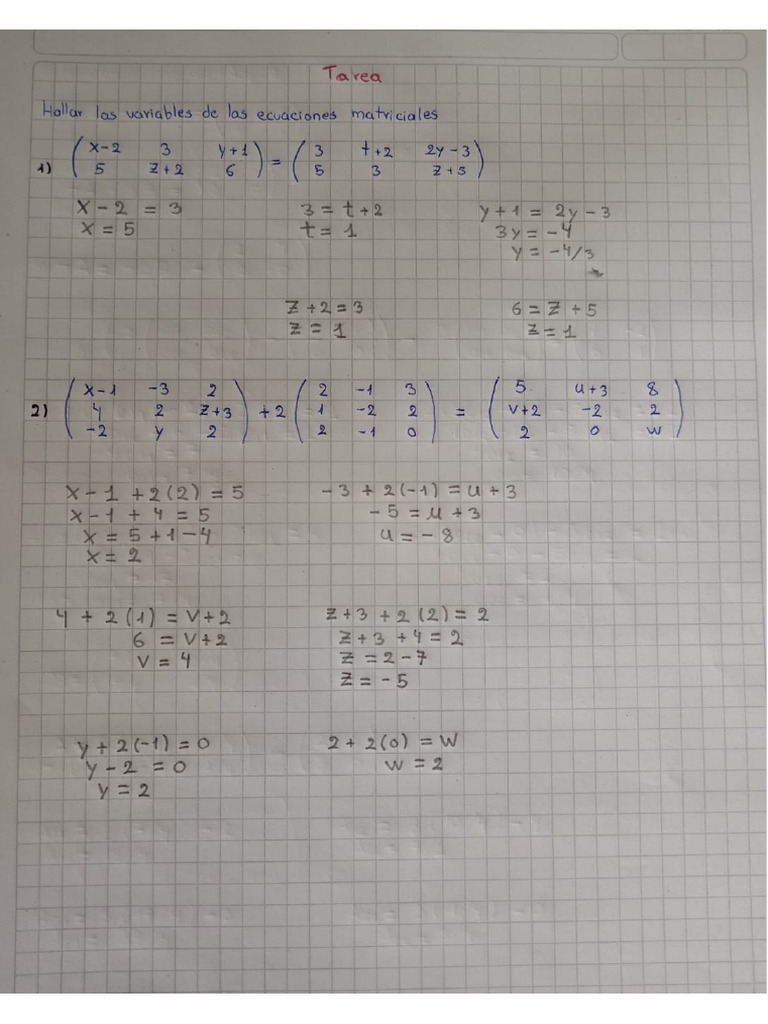 Tarea
Hallar las variables de las ecuaciones matriciales
x-2 3 y+1 3 t+2 2y-3
1) ( ) = ( )
5 z+2 6 5 3 z+5
x-2 = 3 3 = t+2 y+1 = 2y-3
x = 5 t = 1 3y = -4
y = -4/3
z+2 = 3 6 = z+5
z = 1 z = 1
x-1 -3 2 2 -1 3 5 u+3 8
2) ( 4 2 z+3 ) + 2 ( 1 -2 2 ) = ( v+2 -2 2 )
-2 y 2 2 -1 0 2 0 w
x-1 + 2(2) = 5 -3 + 2(-1) = u+3
x-1 + 4 = 5 -5 = u+3
x = 5+1-4 u = -8
x = 2
4 + 2(1) = v+2 z+3 + 2(2) = 2
6 = v+2 z+3+4 = 2
v = 4 z = 2-7
z = -5
y + 2(-1) = 0 2 + 2(0) = w
y-2 = 0 w = 2
y = 2